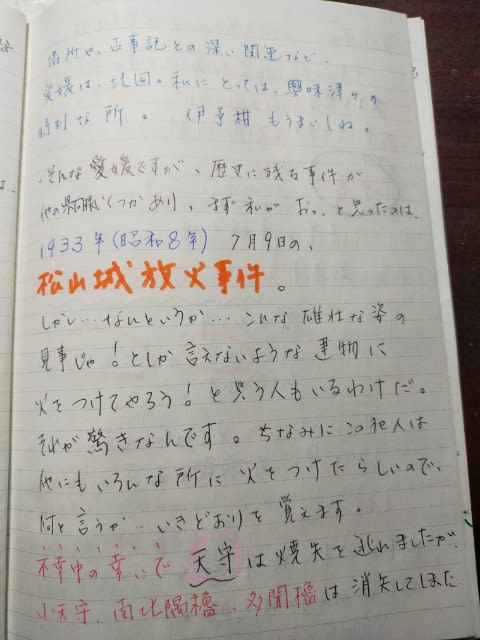 場所や、古事記との深い関連など、
愛媛は、北国の私にとっては、興味津々の
特別な所。 伊予柑もうまいしね。
そんな愛媛ですが、歴史に残る事件が
他の県同様いくつかあり、まず私がおっ、と思ったのは、
1933年(昭和8年) 7月9日の、
松山城放火事件。
しかし…なんというか…こんな雄壮な姿の
見事じゃ!としか言えないような建物に
火をつけてやろう!と思う人もいるわけだ。
それが驚きなんです。ちなみにこの犯人は
他にもいろんな所に火をつけたらしいので、
何と言うか…いきどおりを覚えます。
不幸中の幸いで天守は焼失を逃れましたが、
小天守、南北隅櫓、多聞櫓は消失してしまた